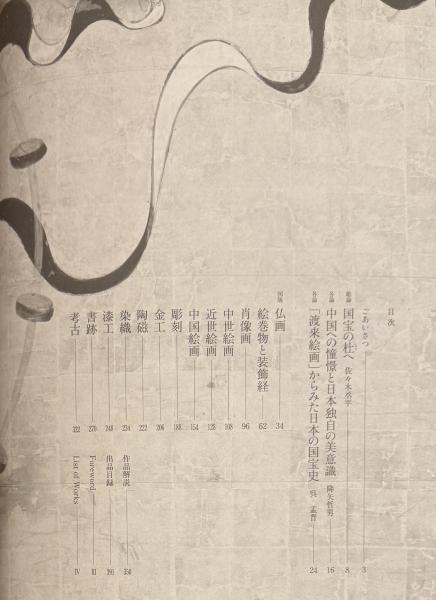 目次
ごあいさつ 3
総論 国宝の杜へ 佐々木丞平 8
各論 中国への憧憬と日本独自の美意識 降矢哲男 16
各論 「渡来絵画」からみた日本の国宝史 呉 孟晋 24
図版
仏画 34
絵巻物と装飾経 62
肖像画 96
中世絵画 108
近世絵画 128
中国絵画 154
彫刻 188
金工 206
陶磁 222
染織 234
漆工 248
書跡 270
考古 322
作品解説 350
出品目録 391
Foreword III
List of Works IV